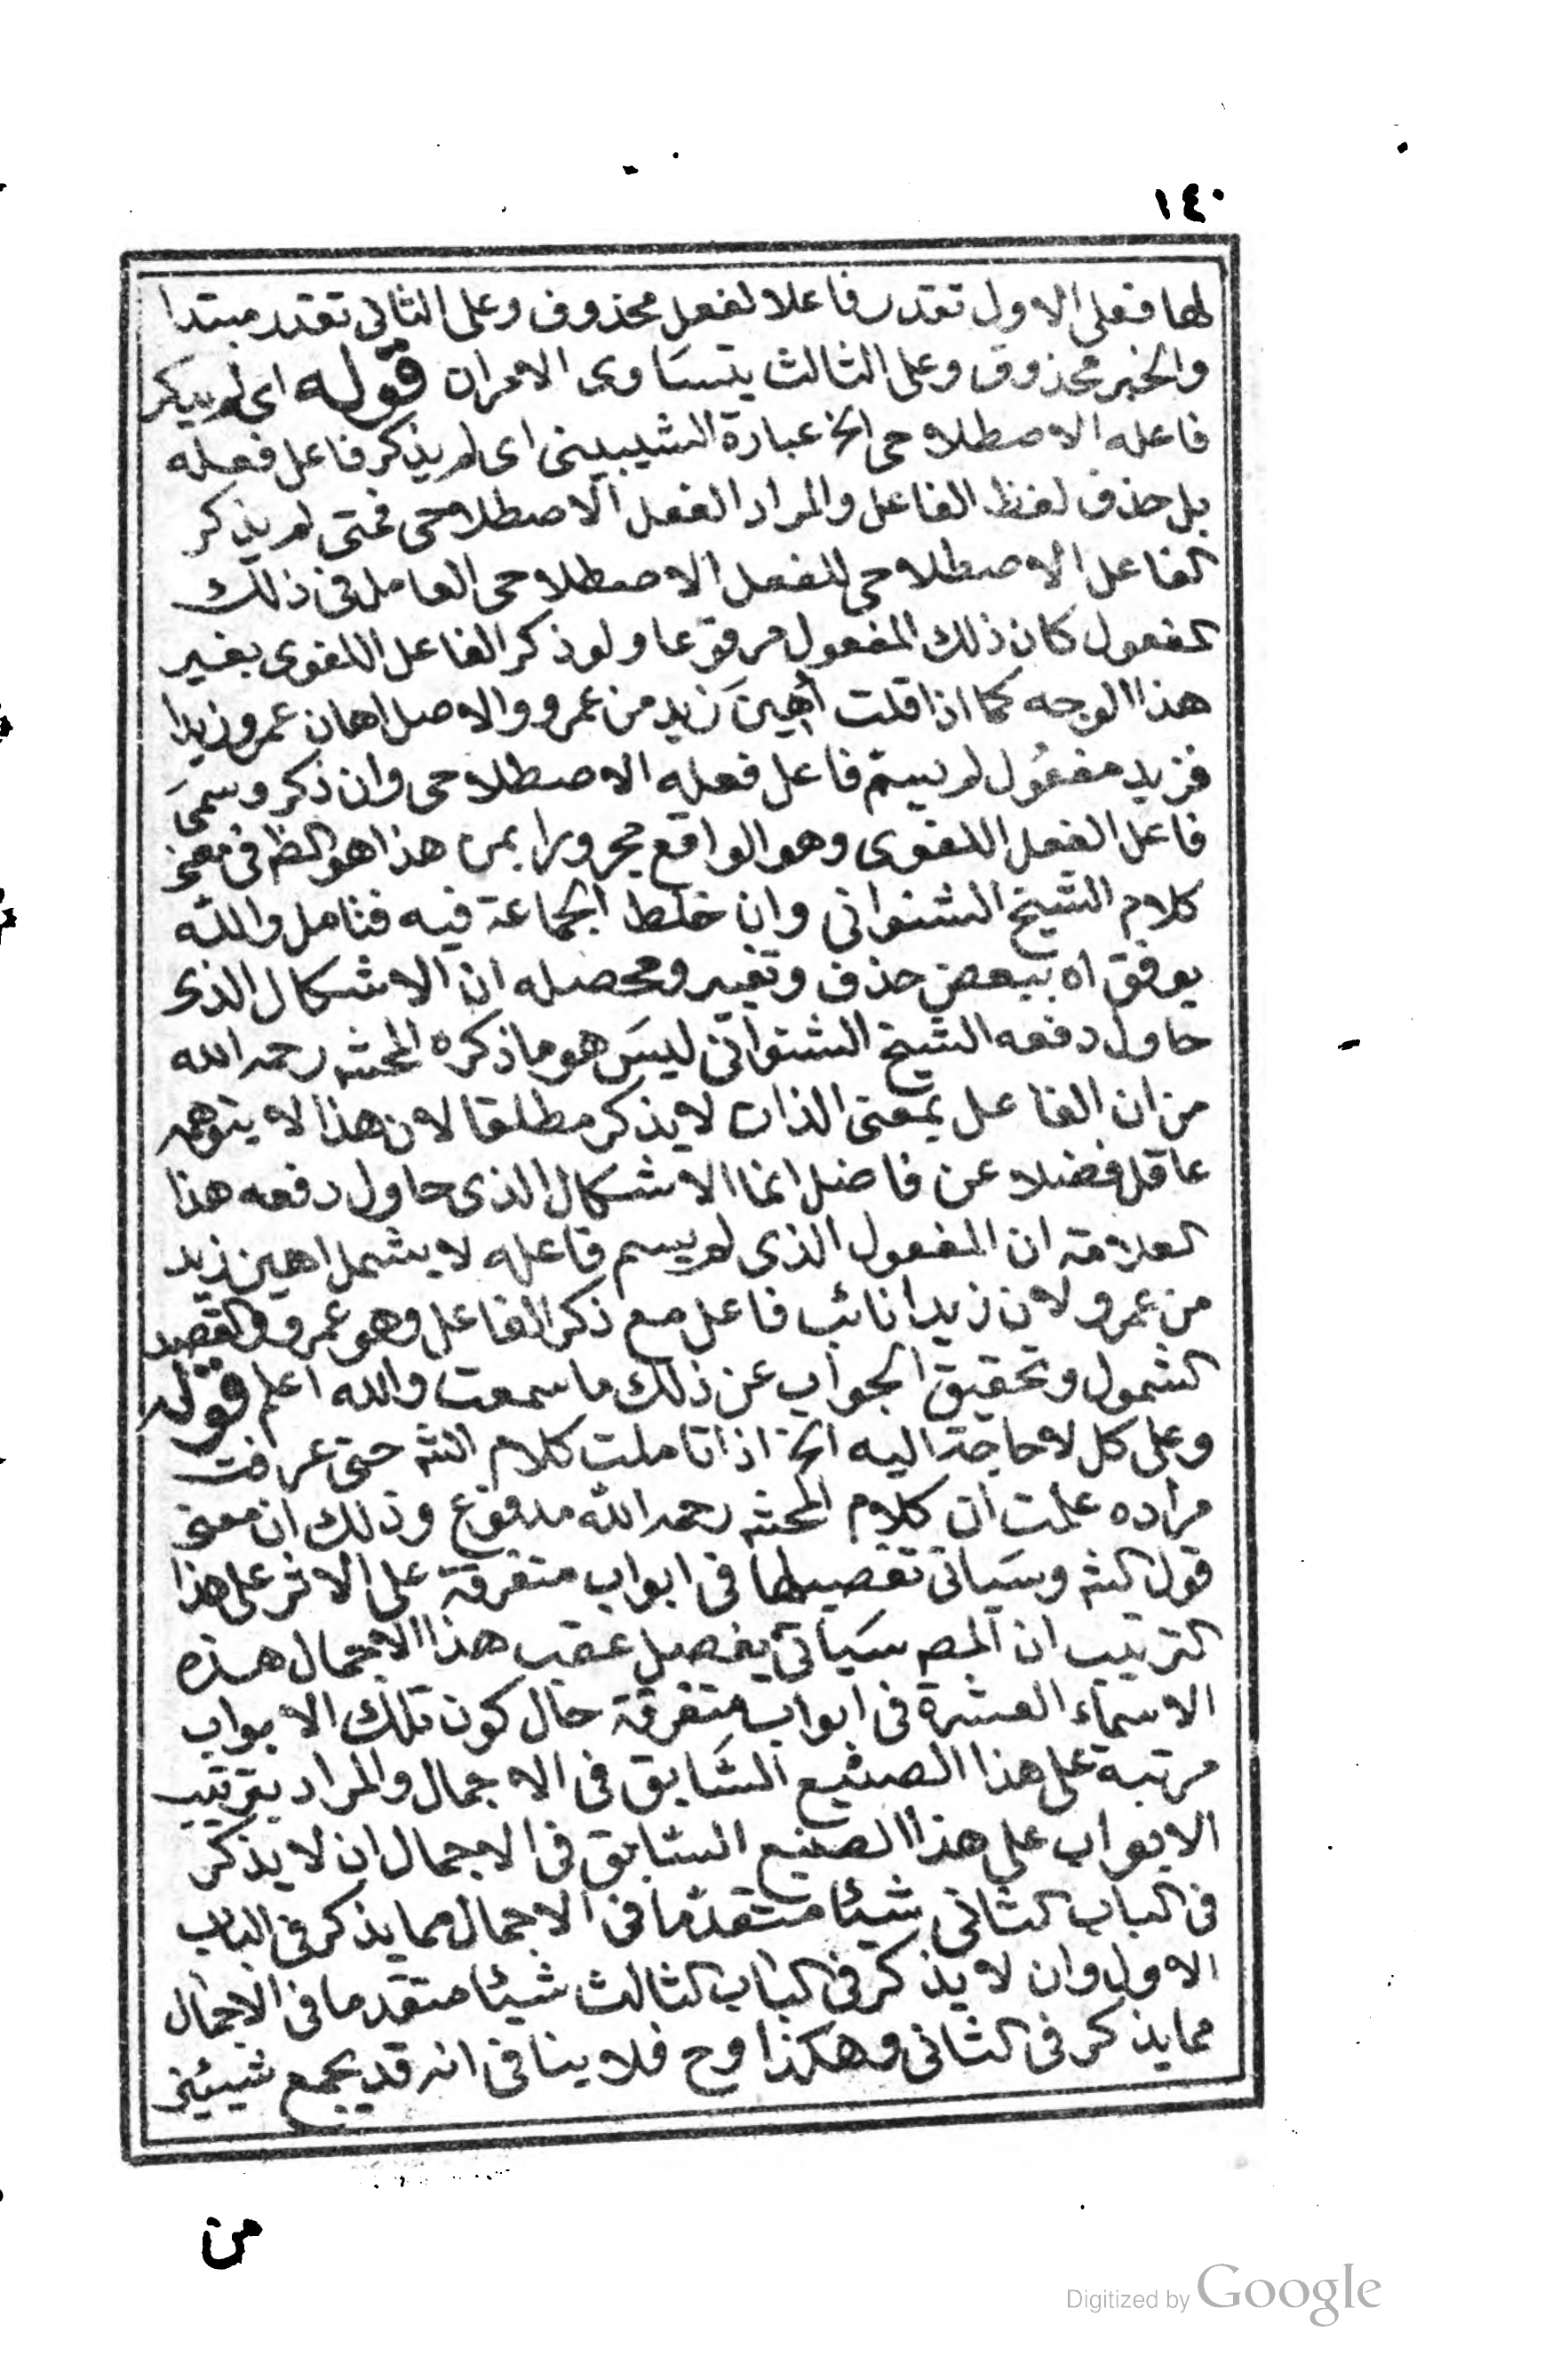 ١٤٠
لها فعلى الاول تقدر فاعلا لفعل محذوف وعلى الثانى تقدر مبتدا
والخبر محذوف وعلى الثالث يتساوى الامران قوله اى لم يذكر
فاعله الاصطلاحى الخ عبارة الشيبينى اى لم يذكر فاعل فعله
بل حذف لفظ الفاعل والمراد الفعل الاصطلاحى فمتى لم يذكر
الفاعل الاصطلاحى للفعل الاصطلاحى العامل فى ذلك
المفعول كان ذلك المفعول مرفوعا ولو ذكر الفاعل اللغوى بغير
هذا الوجه كما اذا قلت أُهِينَ زيد من عمرو والاصل اهان عمرو زيدا
فزيد مفعول لم يسم فاعل فعله الاصطلاحى وان ذكر وسمىَ
فاعل الفعل اللغوى وهو الواقع مجرورا بمن هذا هو الظ فى معنى
كلام الشيخ الشنوانى وان خلط الجماعة فيه فتامل والله
يوفق اه ببعض حذف وتغيير ومحصله ان الاشكال الذى
حاول دفعه الشيخ الشنوانى ليسَ هو ما ذكره المحشى رحمه الله
من ان الفاعل بمعنى الذات لا يذكر مطلقا لان هذا لا يتوهمه
عاقل فضلا عن فاضل انما الاشكال الذى حاول دفعه هذا
العلامة ان المفعول الذى لم يسم فاعله لا يشمل اهين زيد
من عمرو لان زيدا نائب فاعل مع ذكر الفاعل وهو عمرو والقصد
الشمول وتحقيق الجواب عن ذلك ما سمعت والله اعلم قوله
وعلى كل لا حاجة اليه الخ اذا تاملت كلام الشه حتى عرفت
مراده علمت ان كلام المحشى رحمه الله مدفوع وذلك ان معنى
قول الشه وسيَاتى تفصيلها فى ابواب متفرقة على الاثر على هذا
الترتيب ان المصـ سيَاتى يفصل عقب هذا الاجمال هذه
الاسماء العشرة فى ابواب متفرقة حال كون تلك الابواب
مرتبة على هذا الصنيع السَابق فى الاجمال والمراد بترتيب
الابواب على هذا الصنيع السَابق فى الاجمال ان لا يذكر
فى الباب الثانى شيئا متقدما فى الاجمال مما يذكر فى الباب
الاول وان لا يذكر فى الباب الثالث شيئا متقدما فى الاجمال
مما يذكر فى الثانى وهكذا وح فلا ينافى انه قد يجمع شيئين
من
Digitized by Google